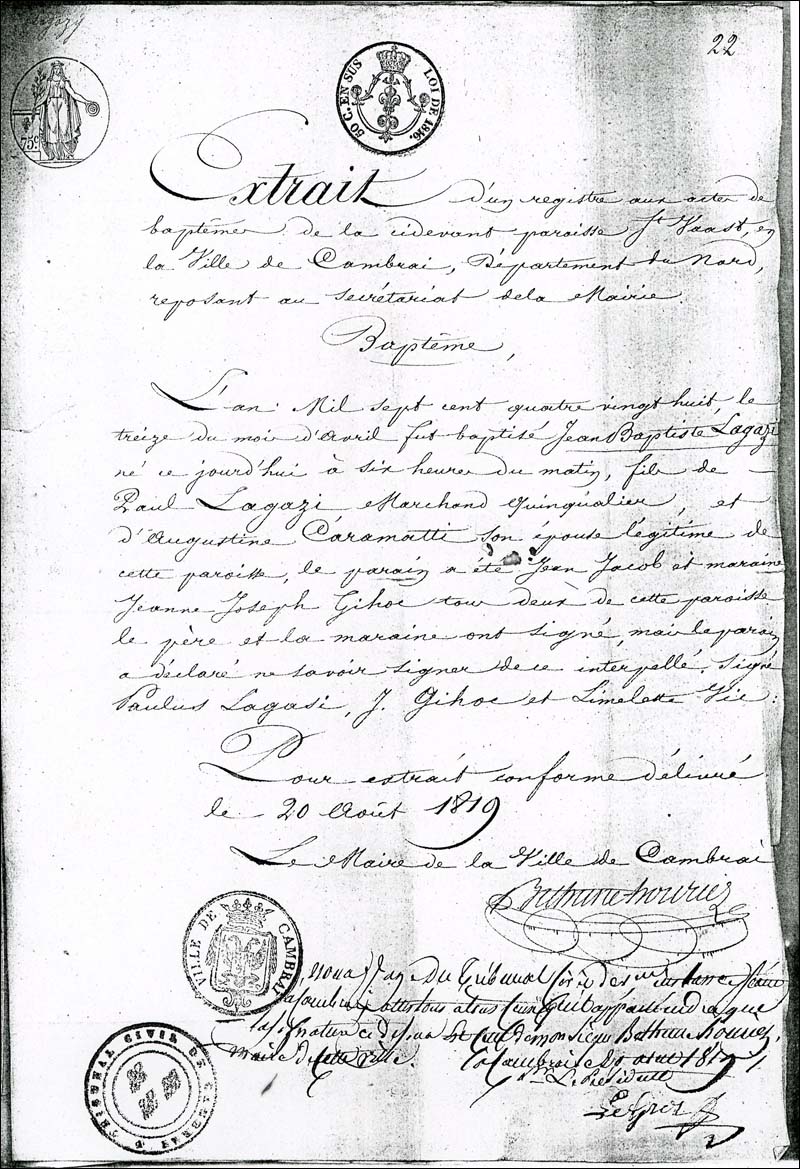 22
75c
50 C. EN SUS LOI DE 1816.
Extrait d'un registre aux actes de
baptêmes de la cidevant paroisse St Vaast, en
la Ville de Cambrai, Département du Nord,
reposant au secrétariat dela Mairie.
Baptême,
L'an Mil sept cent quatre vingt huit, le
treize du mois d'avril fut baptisé Jean Baptiste Lagazi
né ce jourd'hui à six heures du matin, fils de
Paul Lagazi Marchand Quinqualier, et
d'Augustine Caramatti son épouse légitime de
cette paroisse, le parain a été Jean Jacob et maraine
Jeanne Joseph Gihoc tous deux de cette paroisse
le père et la maraine ont signé, mais le parain
a déclaré ne savoir signer de ce interpellé. Signé
Paulus Lagasi, J. Gihoc et Limelette Vic:
Pour extrait conforme délivré
le 20 Août 1819
Le Maire de la Ville de Cambrai
Bethune houriez
VILLE DE CAMBRAI
Nous du Tribunal
a Cambrai attestons a tous ceux qu'il appartiendra que
la signature ci dessus est celle de monsieur Bethune houriez
Maire de cette ville. Cambrai le août 1819
Le Président
TRIBUNAL CIVIL DE CAMBRAI